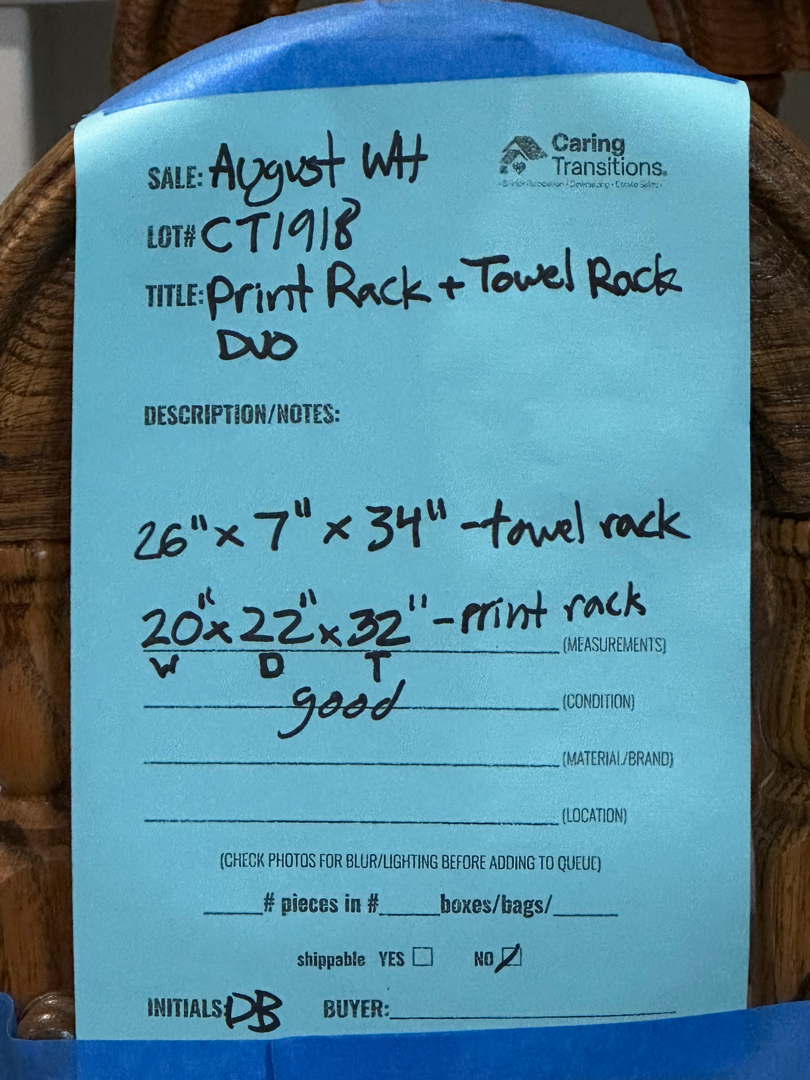 SALE: August WH
Caring
Transitions®
LOT# CT1918
TITLE: Print Rack + Towel Rack
DUO
DESCRIPTION/NOTES:
26" x 7" x 34" - towel rack
20" x 22" x 32" - print rack
(MEASUREMENTS)
W D T
good (CONDITION)
(MATERIAL/BRAND)
(LOCATION)
(CHECK PHOTOS FOR BLUR/LIGHTING BEFORE ADDING TO QUEUE)
____# pieces in #____boxes/bags/____
shippable YES ☐ NO ☑
INITIALS: DB BUYER: